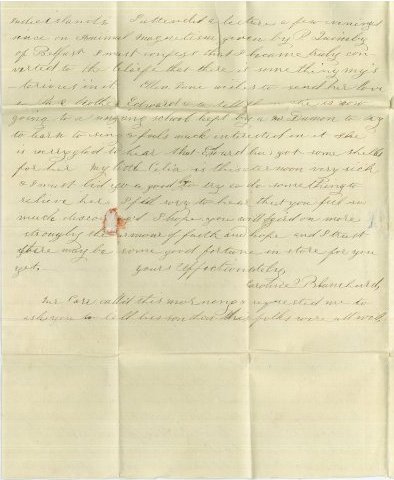 I attended a lecture a few evenings
since on Animal Magnetism given by P Quimby
of Belfast I must confess that I became truly con
verted to the beliefe that there is something mys
terious in it. wishes to send her love
to Brother Edward &
going to a singing school kept by a Mr to try
to learn to sing & feels much interested in it she
is very glad to hear that Edward has got some shells
for her. My Celia is this afternoon very sick
& I must bid you a good to try & do something to
relieve her. I feel sory to hear that you feel so
much discouraged I hope you will on more
strongly the armour of faith and hope and I trust
there may be some good fortune in store for you
yet. your Affectionately
Caroline Blanchard
Mr called this morning & requested me to
ask you to tell his son that his folks were all well